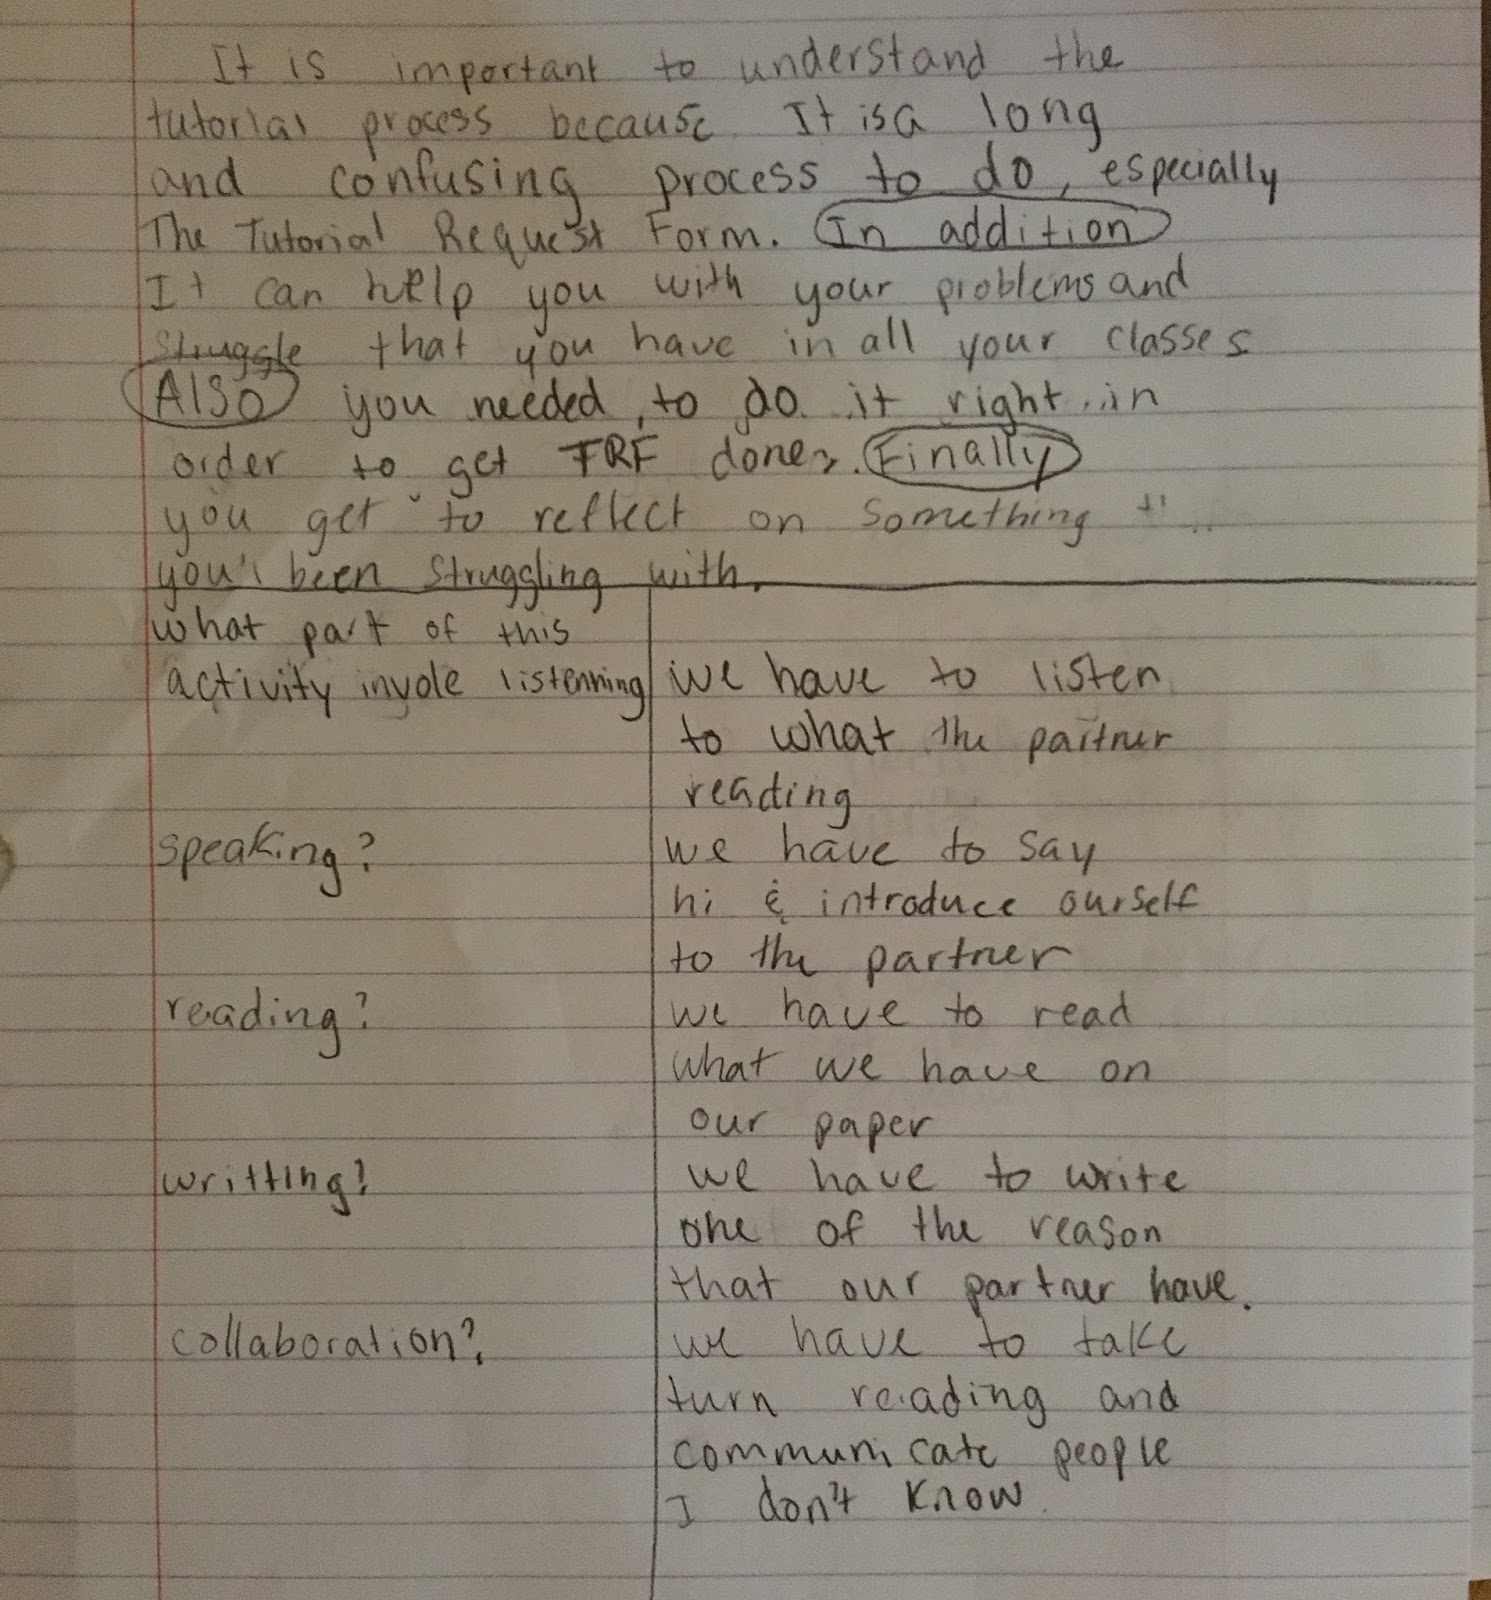 It is important to understand the
tutorial process because It is a long
and confusing process to do, especially
The Tutorial Request Form. In addition
It can help you with your problems and
struggle that you have in all your classes
Also you needed to do it right in
order to get TRF done. Finally
you get to reflect on something
you'v been struggling with.
what part of this
activity invole listenning we have to listen
to what the partner
reading
speaking? we have to say
hi & introduce ourself
to the partner
reading? we have to read
what we have on
our paper
writting? we have to write
one of the reason
that our partner have.
collaboration? we have to take
turn reading and
communicate people
I don't know.